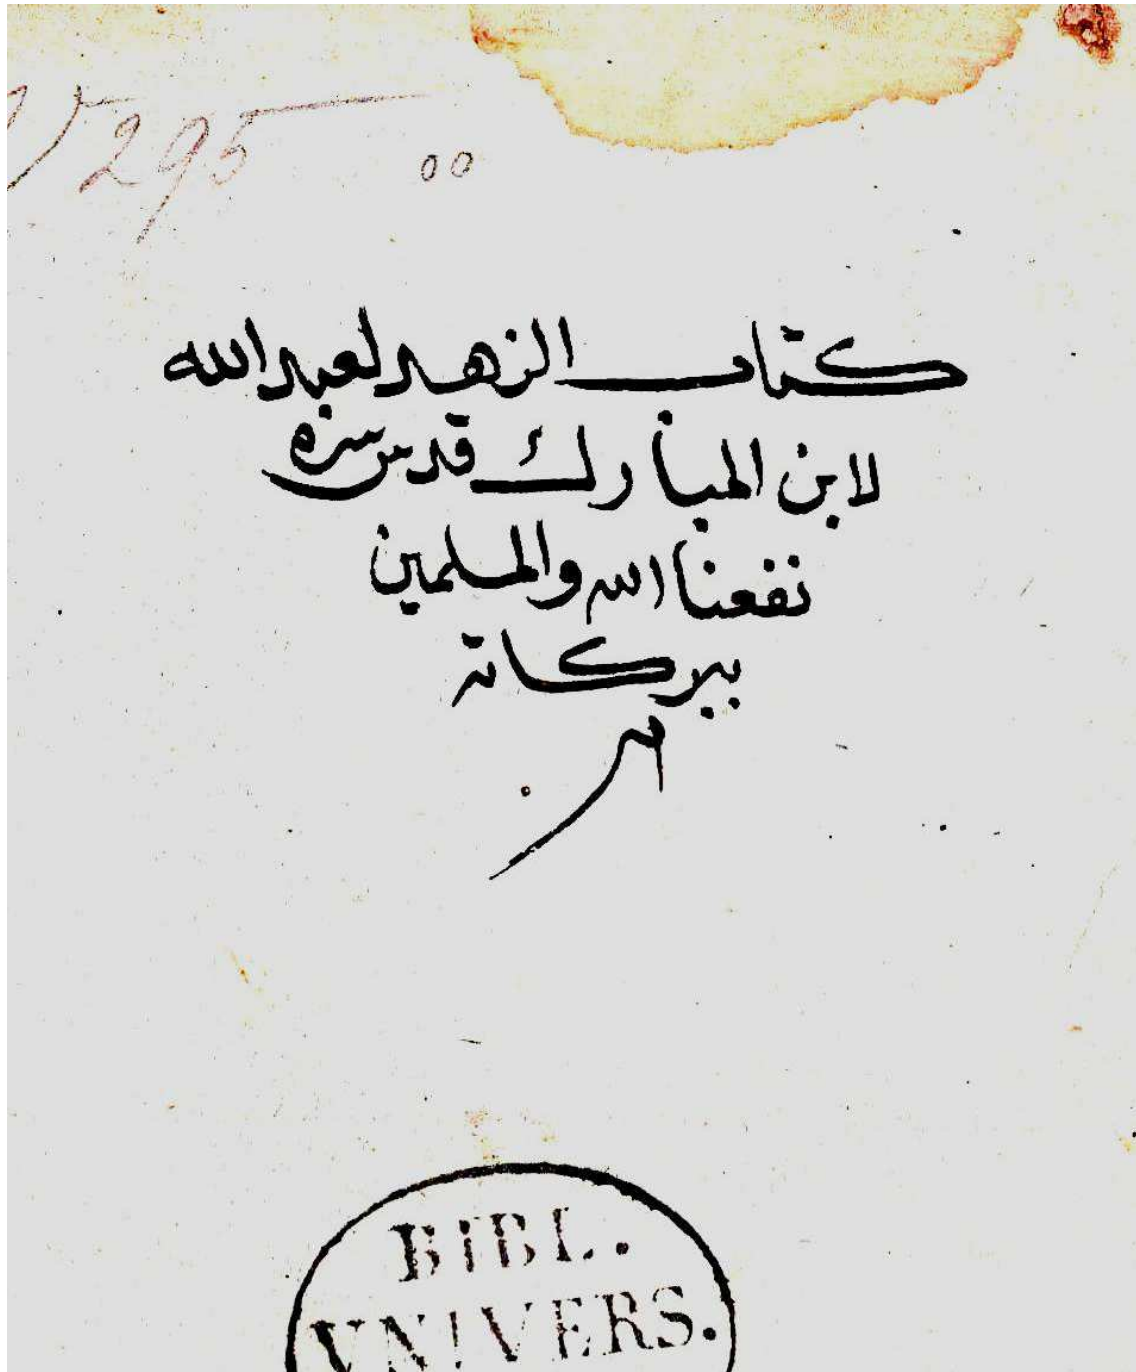 295
00
كتاب الزهد لعبد الله
لابن المبارك قدس سره
نفعنا الله والمسلمين
ببركاته
BIBL.
VNIVERS.